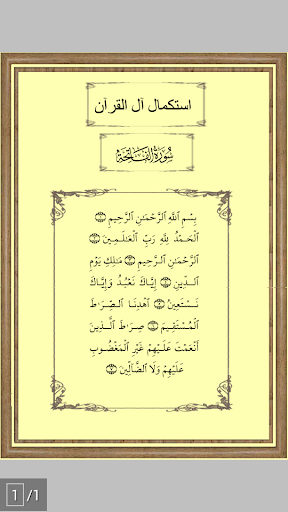 استكمال آل القرآن
سُورَةُ الفَاتِحَةِ
بِسْمِ ٱللَّهِ ٱلرَّحْمَـٰنِ ٱلرَّحِيمِ ۝
ٱلْحَمْدُ لِلَّهِ رَبِّ ٱلْعَـٰلَمِينَ ۝
ٱلرَّحْمَـٰنِ ٱلرَّحِيمِ ۝ مَـٰلِكِ يَوْمِ
ٱلدِّينِ ۝ إِيَّاكَ نَعْبُدُ وَإِيَّاكَ
نَسْتَعِينُ ۝ ٱهْدِنَا ٱلصِّرَٰطَ
ٱلْمُسْتَقِيمَ ۝ صِرَٰطَ ٱلَّذِينَ
أَنْعَمْتَ عَلَيْهِمْ غَيْرِ ٱلْمَغْضُوبِ
عَلَيْهِمْ وَلَا ٱلضَّالِّينَ ۝
1/1